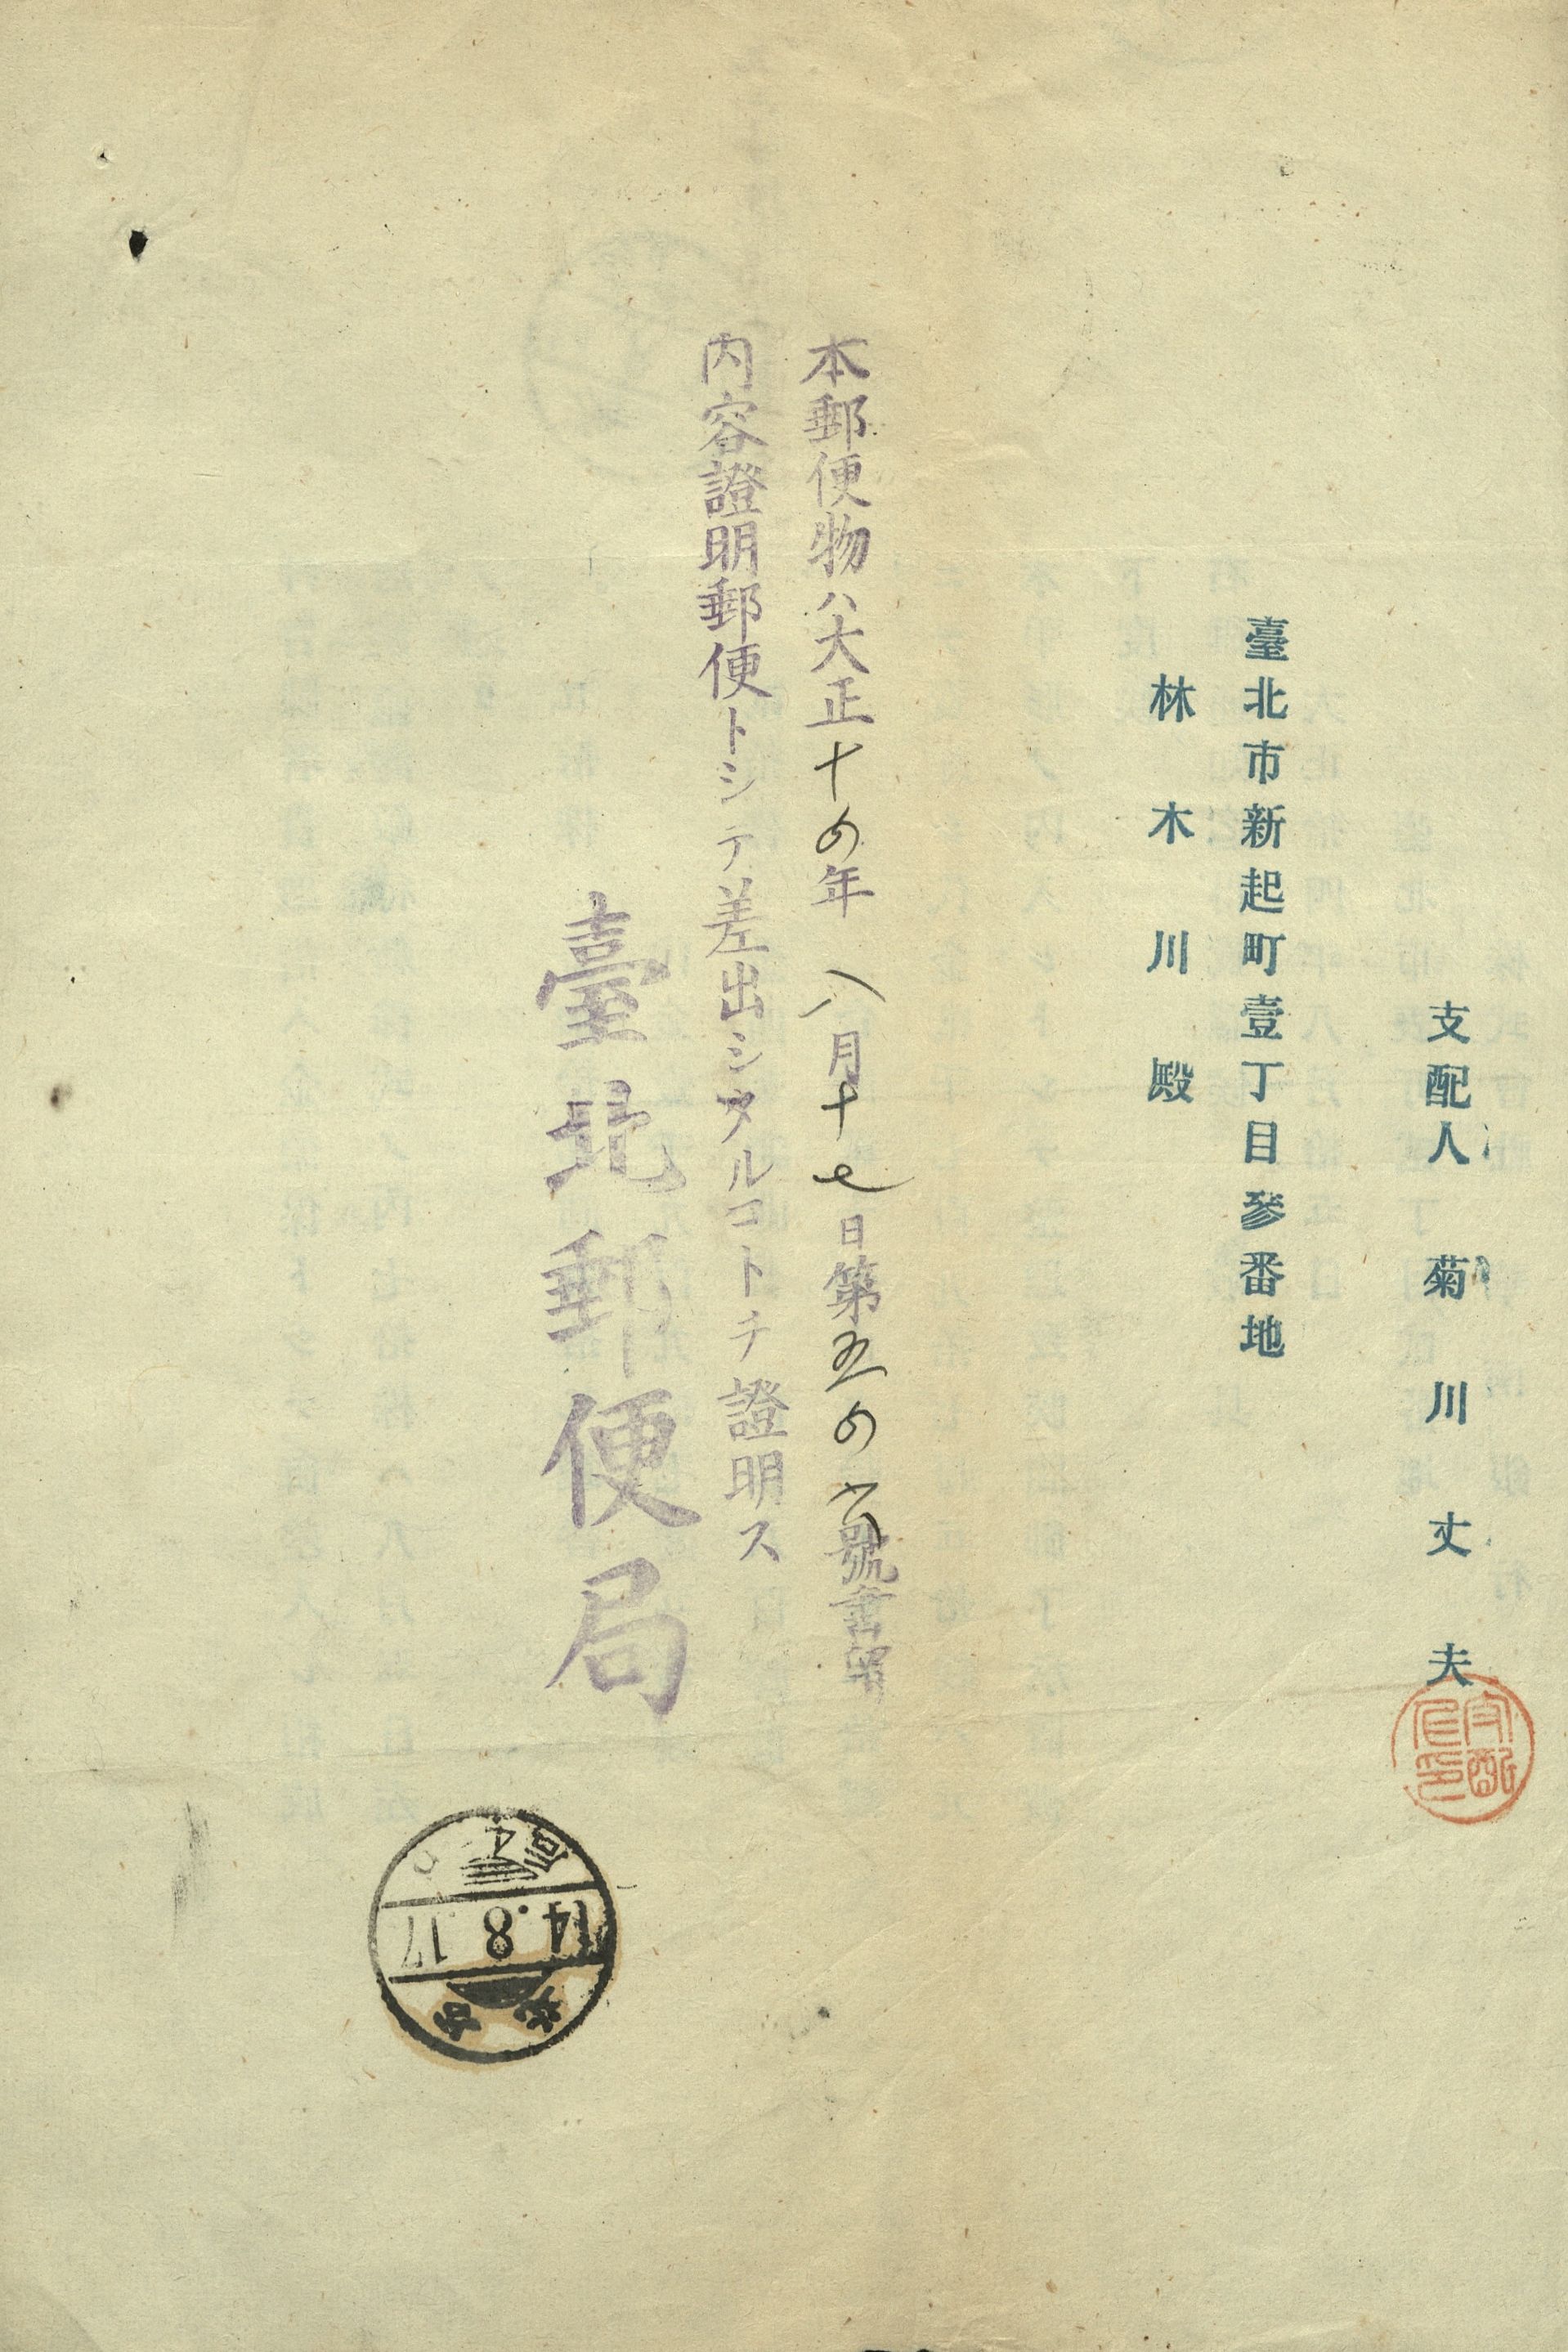 支配人 菊川丈夫
支配人印
臺北市新起町壹丁目參番地
林木川殿
本郵便物ハ大正十四年八月十七日第五四六號書留
內容證明郵便トシテ差出シタルコトヲ證明ス
臺北郵便局
14.8.17